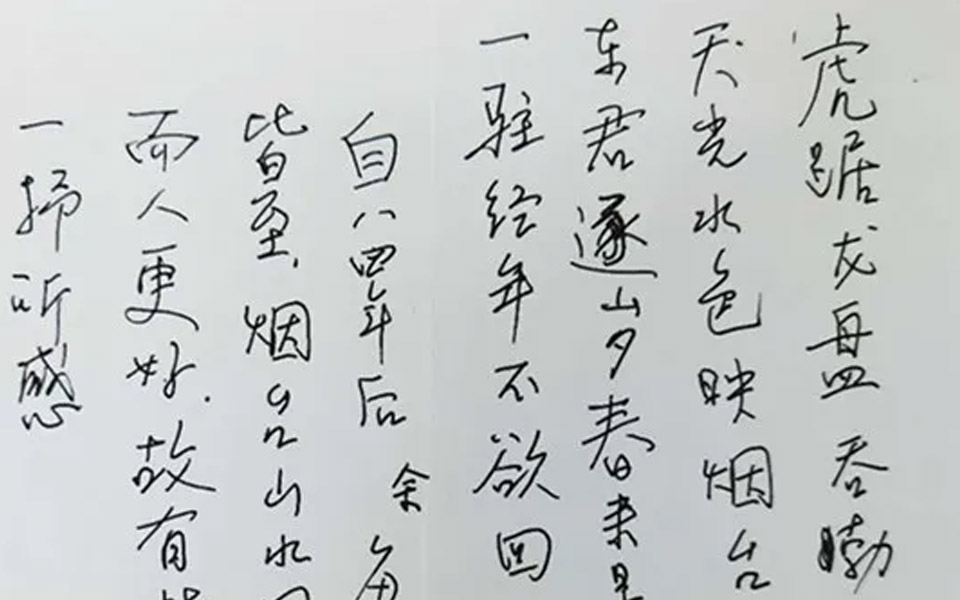 虎踞龙盘吞渤
天光水色映烟台
东君遂岁春来
一驻经年不欲回
自八四年后 余每
皆至,烟台山水
而人更好.故有
一抒所感